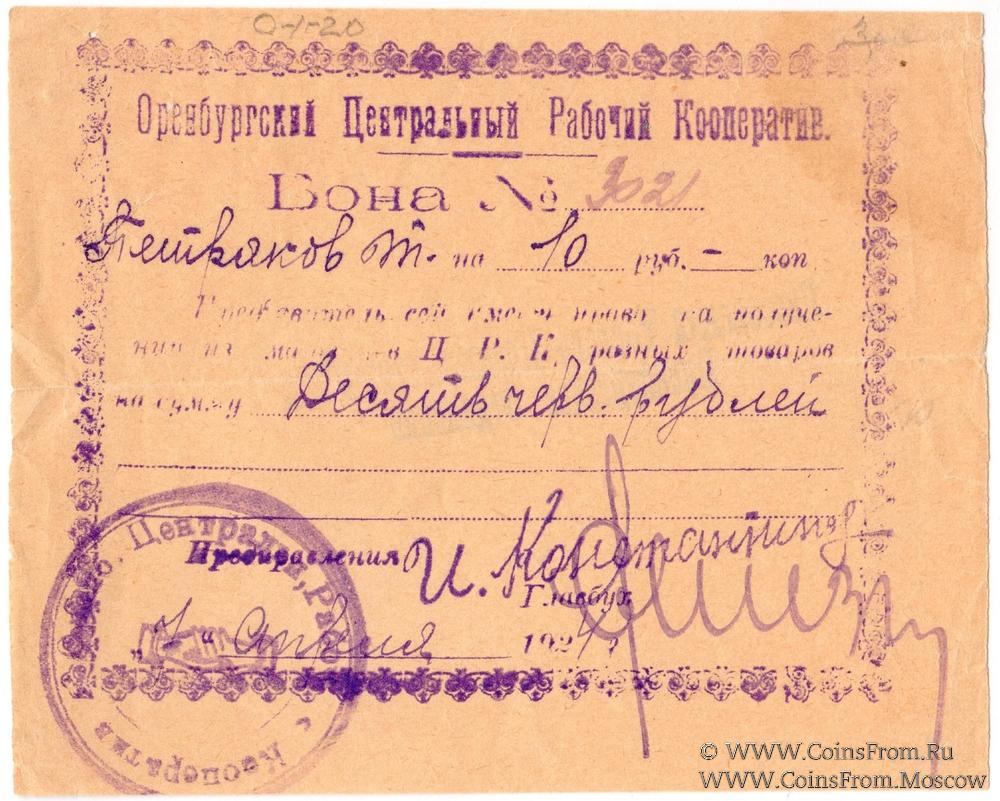 0-1-20
Оренбургский Центральный Рабочий Кооператив.
Бона № 3021
Петряков Т. на 10 руб. – коп.
Предъявитель сей имеет право на получе-
нии из магазинов Ц Р К разных товаров
на сумму Десять черв. рублей
Предправления И. Константинов
Главбух
„7“ апреля 1924
Центральн. Раб
Кооператив
© WWW.CoinsFrom.Ru
WWW.CoinsFrom.Moscow